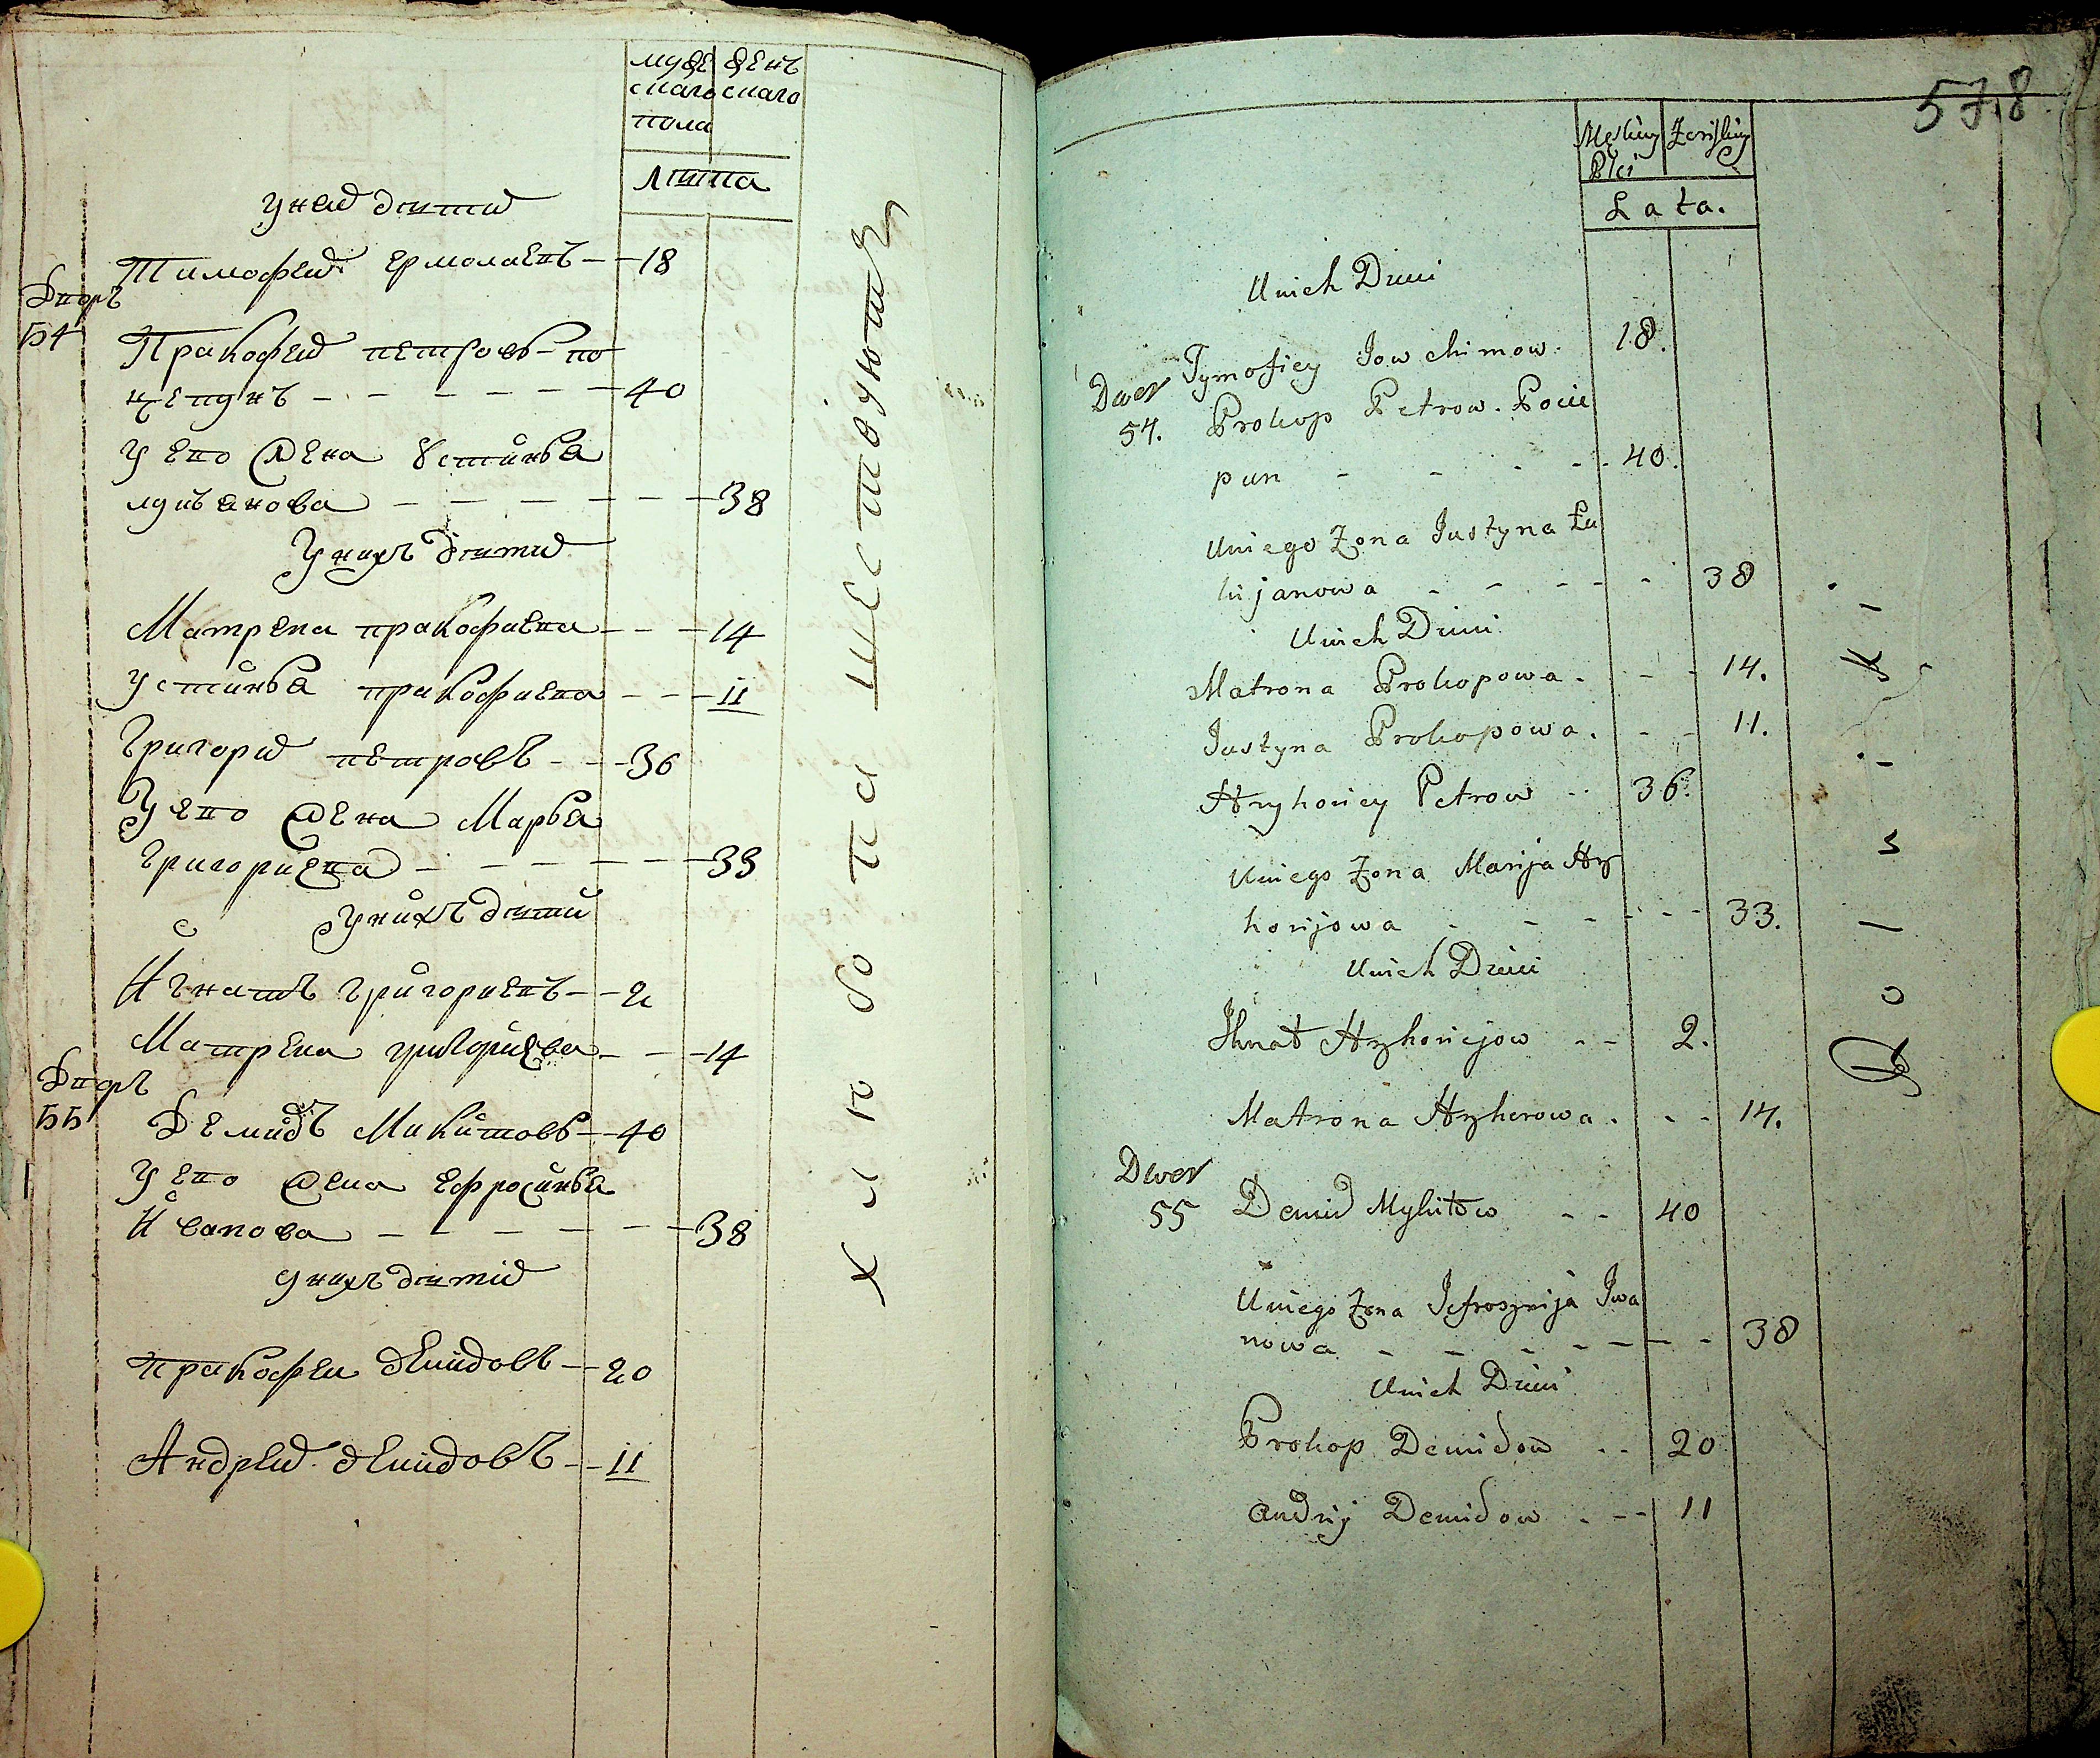 мужескаго пола
женскаго
лѣта
У ней дѣтей
Тимофей Ермолаевъ 18
Дворъ 54
Пракофей Петровъ По
цепунъ 40
У его жена Устинья
Лукьянова 38
У нихъ дѣтей
Матрена Пракофиева 14
Устинья Пракофиева 11
Григорей Петровъ 36
У его жена Марья
Григориева 33
У нихъ дѣтей
Игнатъ Григориевъ 2
Матрена Григориева 14
Дворъ 55
Демидъ Микитовъ 40
У его жена Ефросинья
Иванова 38
У нихъ дѣтей
Пракофей Демидовъ 20
Андрей Демидовъ 11
хлѣбопашествуютъ
578
Męskiey Płci
Żenskiey
Lata.
U nich Dzieci
Tymofiey Jowchimow. 18.
Dwor 54.
Prokop Petrow. Pocie
pun 40.
U niego Żona Justyna Łu
kijanowa 38
U nich Dzieci
Matrona Prokopowa. 14.
Justyna Prokopowa. 11.
Hryhoriey Petrow 36.
U niego Żona Marija Hry
horijowa 33.
U nich Dzieci
Ihnat Hryhoriejow 2.
Matrona Hryhorowa. 14.
Dwor 55
Demid Mykitow 40
U niego Żona Jefrosynija Iwa
nowa 38
U nich Dzieci
Prokop Demidow 20
Andrij Demidow 11